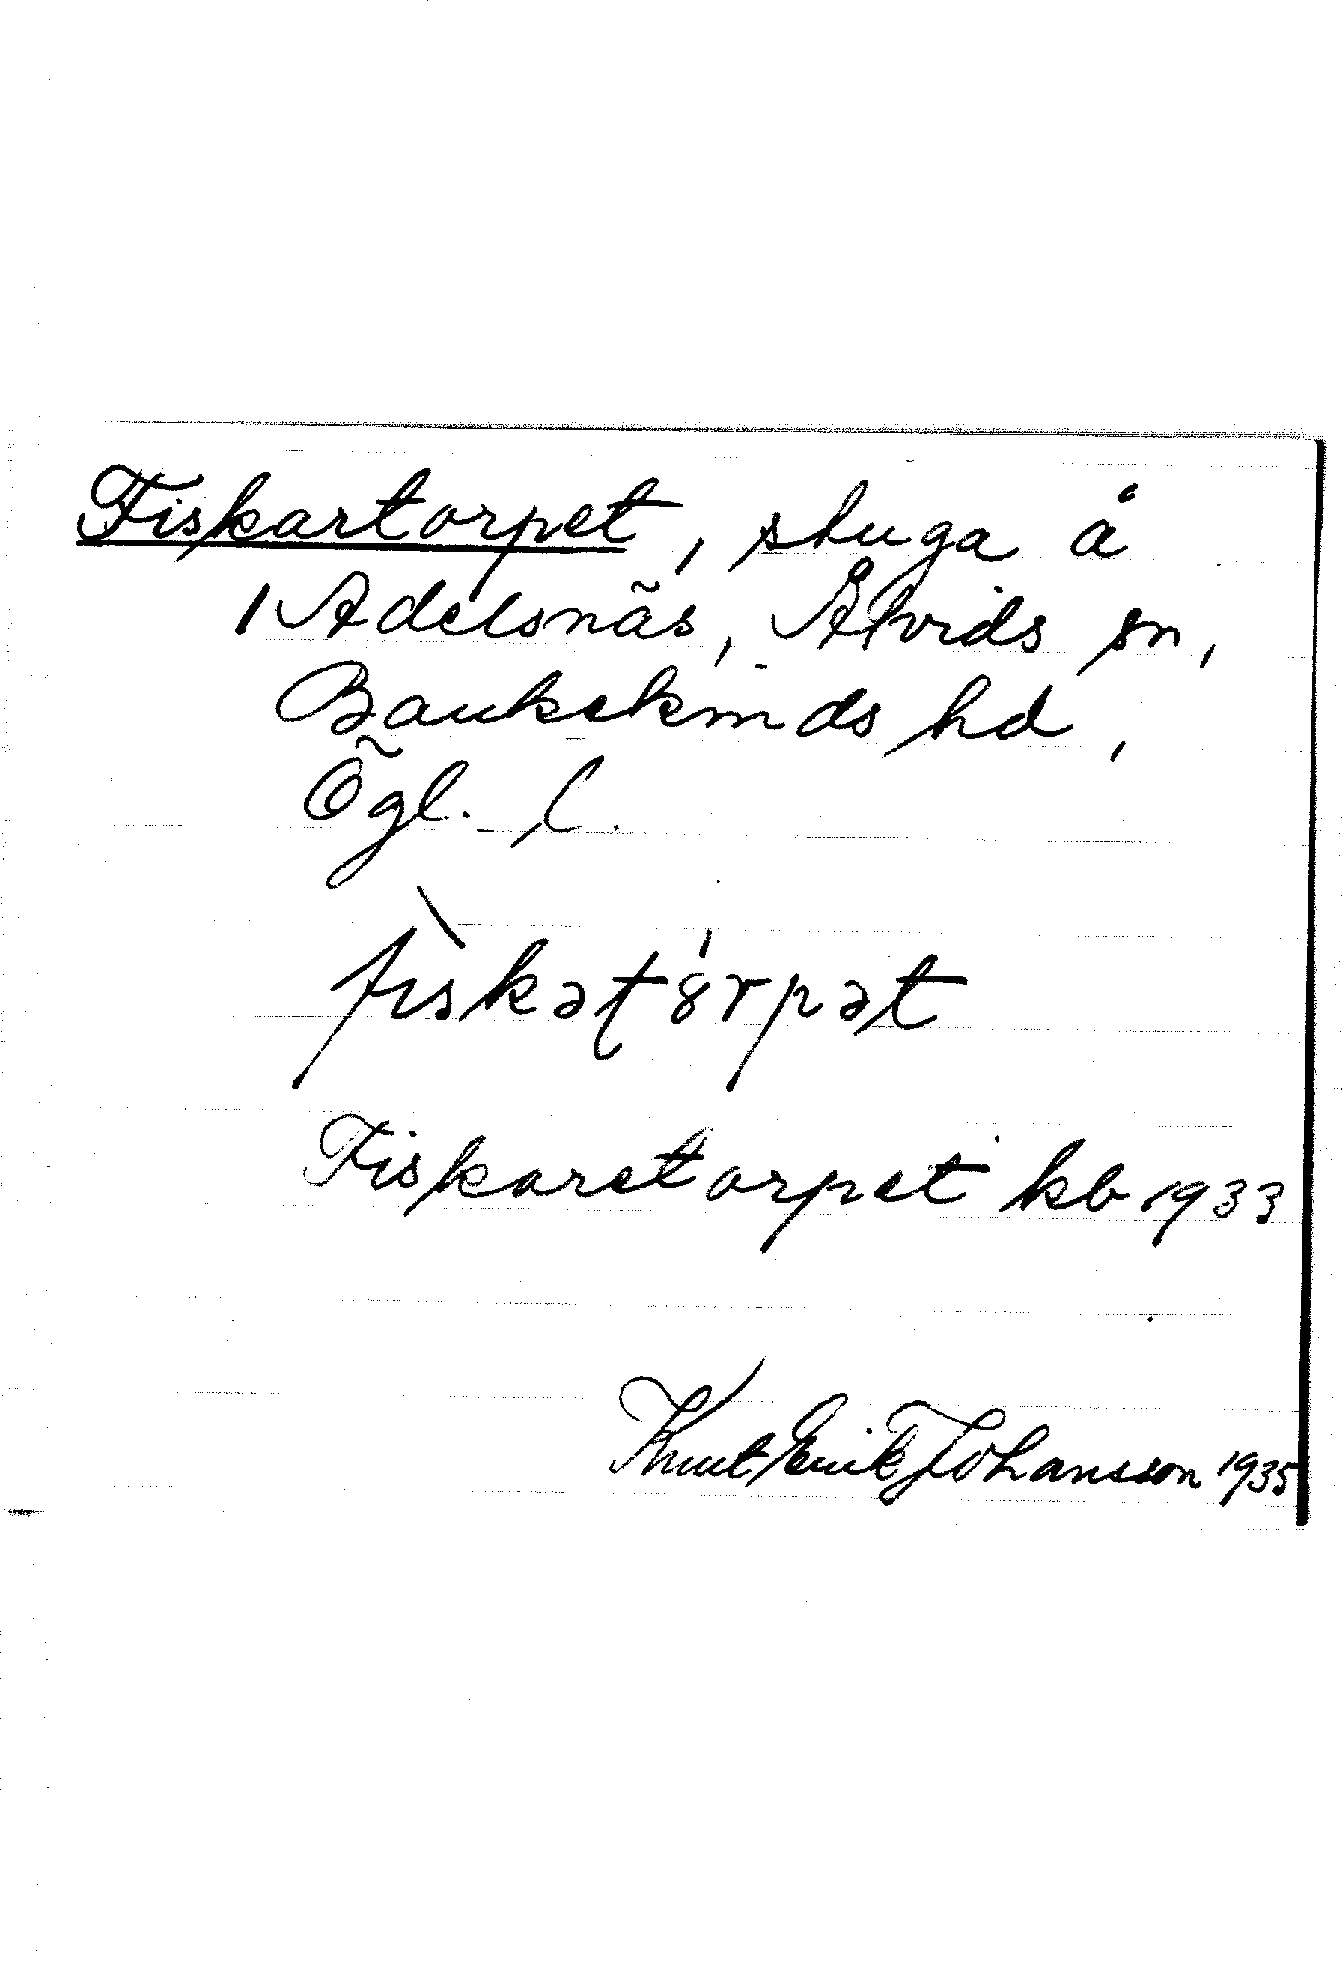 Fiskartorpet, stuga å
1 Adelsnäs, Åtvids sn,
Bankekinds hd,
Ögl. l.
fìskətórpət
Fiskaretorpet kb 1933
Knut Erik Johansson 1935